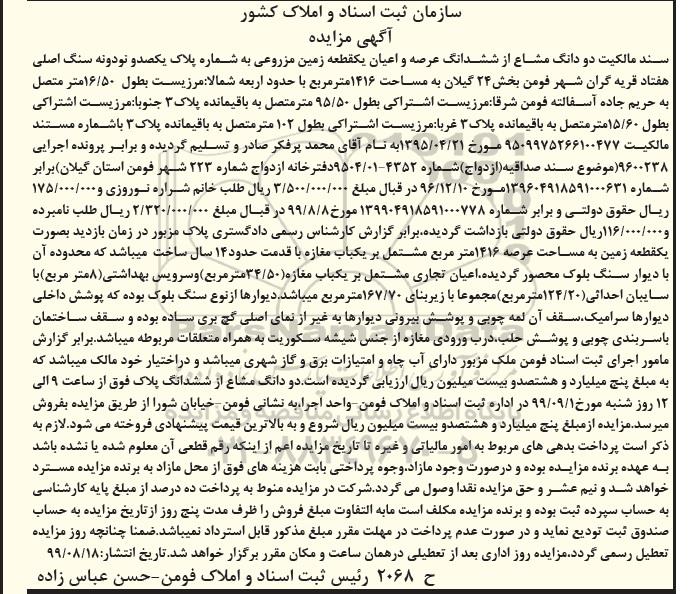 سازمان ثبت اسناد و املاک کشور
آگهی مزایده
سند مالکیت دو دانگ مشاع از ششدانگ عرصه و اعیان یکقطعه زمین مزروعی به شماره پلاک یکصدو نودونه سنگ اصلی
هفتاد قریه گران شهر فومن بخش۲۴ گیلان به مساحت ۱۴۱۶مترمربع با حدود اربعه شمالا:مرزیست بطول ۱۶/۵۰متر متصل
به حریم جاده آسفالته فومن شرقا:مرزیست اشتراکی بطول ۹۵/۵۰ مترمتصل به باقیمانده پلاک۳ جنوبا:مرزیست اشتراکی
بطول ۱۵/۶۰مترمتصل به باقیمانده پلاک۳ غربا:مرزیست اشتراکی بطول ۱۰۲ مترمتصل به باقیمانده پلاک۳ باشماره مستند
مالکیت ۹۵۰۹۹۷۵۲۶۶۱۰۰۴۷۷ مورخ ۱۳۹۵/۰۴/۲۱به نام آقای محمد پرفکر صادر و تسلیم گردیده و برابر پرونده اجرایی
۹۶۰۰۲۳۸(موضوع سند صداقیه(ازدواج)شماره ۴۳۵۲-۹۵۰۴/۰۱دفترخانه ازدواج شماره ۲۲۳ شهر فومن استان گیلان)برابر
شماره ۱۳۹۶۰۴۹۱۸۵۹۱۰۰۰۶۳۱مورخ ۹۶/۱۲/۱۰ در قبال مبلغ ۳/۵۰۰/۰۰۰/۰۰۰ ریال طلب خانم شراره نوروزی و۱۷۵/۰۰۰/۰۰۰
ریال حقوق دولتی و برابر شماره ۱۳۹۹۰۴۹۱۸۵۹۱۰۰۰۷۷۸ مورخ۹۹/۸/۸ در قبال مبلغ ۲/۳۲۰/۰۰۰/۰۰۰ ریال طلب نامبرده
و۱۱۶/۰۰۰/۰۰۰ریال حقوق دولتی بازداشت گردیده،برابر گزارش کارشناس رسمی دادگستری پلاک مزبور در زمان بازدید بصورت
یکقطعه زمین به مساحت عرصه ۱۴۱۶متر مربع مشتمل بر یکباب مغازه با قدمت حدود۱۴ سال ساخت میباشد که محدوده آن
با دیوار سنگ بلوک محصور گردیده،اعیان تجاری مشتمل بر یکباب مغازه(۳۴/۵۰مترمربع)وسرویس بهداشتی(۸متر مربع)با
سایبان احداثی(۱۲۴/۲۰مترمربع)مجموعا با زیربنای ۱۶۷/۷۰مترمربع میباشد.دیوارها ازنوع سنگ بلوک بوده که پوشش داخلی
دیوارها سرامیک،سقف آن لمه چوبی و پوشش بیرونی دیوارها به غیر از نمای اصلی گچ بری ساده بوده و سقف ساختمان
باسربندی چوبی و پوشش حلب،درب ورودی مغازه از جنس شیشه سکوریت به همراه متعلقات مربوطه میباشد.برابر گزارش
مامور اجرای ثبت اسناد فومن ملک مزبور دارای آب چاه و امتیازات برق و گاز شهری میباشد و دراختیار خود مالک میباشد که
به مبلغ پنج میلیارد و هشتصدو بیست میلیون ریال ارزیابی گردیده است.دو دانگ مشاع از ششدانگ پلاک فوق از ساعت ۹ الی
۱۲ روز شنبه مورخ۹۹/۰۹/۱ در اداره ثبت اسناد و املاک فومن-واحد اجرا،به نشانی فومن-خیابان شورا از طریق مزایده بفروش
میرسد.مزایده ازمبلغ پنج میلیارد و هشتصدو بیست میلیون ریال شروع و به بالاترین قیمت پیشنهادی فروخته می شود.لازم به
ذکر است پرداخت بدهی های مربوط به امور مالیاتی و غیره تا تاریخ مزایده اعم از اینکه رقم قطعی آن معلوم شده یا نشده باشد
به عهده برنده مزایده بوده و درصورت وجود مازاد،وجوه پرداختی بابت هزینه های فوق از محل مازاد به برنده مزایده مسترد
خواهد شد و نیم عشر و حق مزایده نقدا وصول می گردد.شرکت در مزایده منوط به پرداخت ده درصد از مبلغ پایه کارشناسی
به حساب سپرده ثبت بوده و برنده مزایده مکلف است مابه التفاوت مبلغ فروش را ظرف مدت پنج روز ازتاریخ مزایده به حساب
صندوق ثبت تودیع نماید و در صورت عدم پرداخت در مهلت مقرر مبلغ مذکور قابل استرداد نمیباشد.ضمنا چنانچه روز مزایده
تعطیل رسمی گردد،مزایده روز اداری بعد از تعطیلی درهمان ساعت و مکان مقرر برگزار خواهد شد.تاریخ انتشار:۹۹/۰۸/۱۸
ح ۲۰۶۸ رئیس ثبت اسناد و املاک فومن-حسن عباس زاده